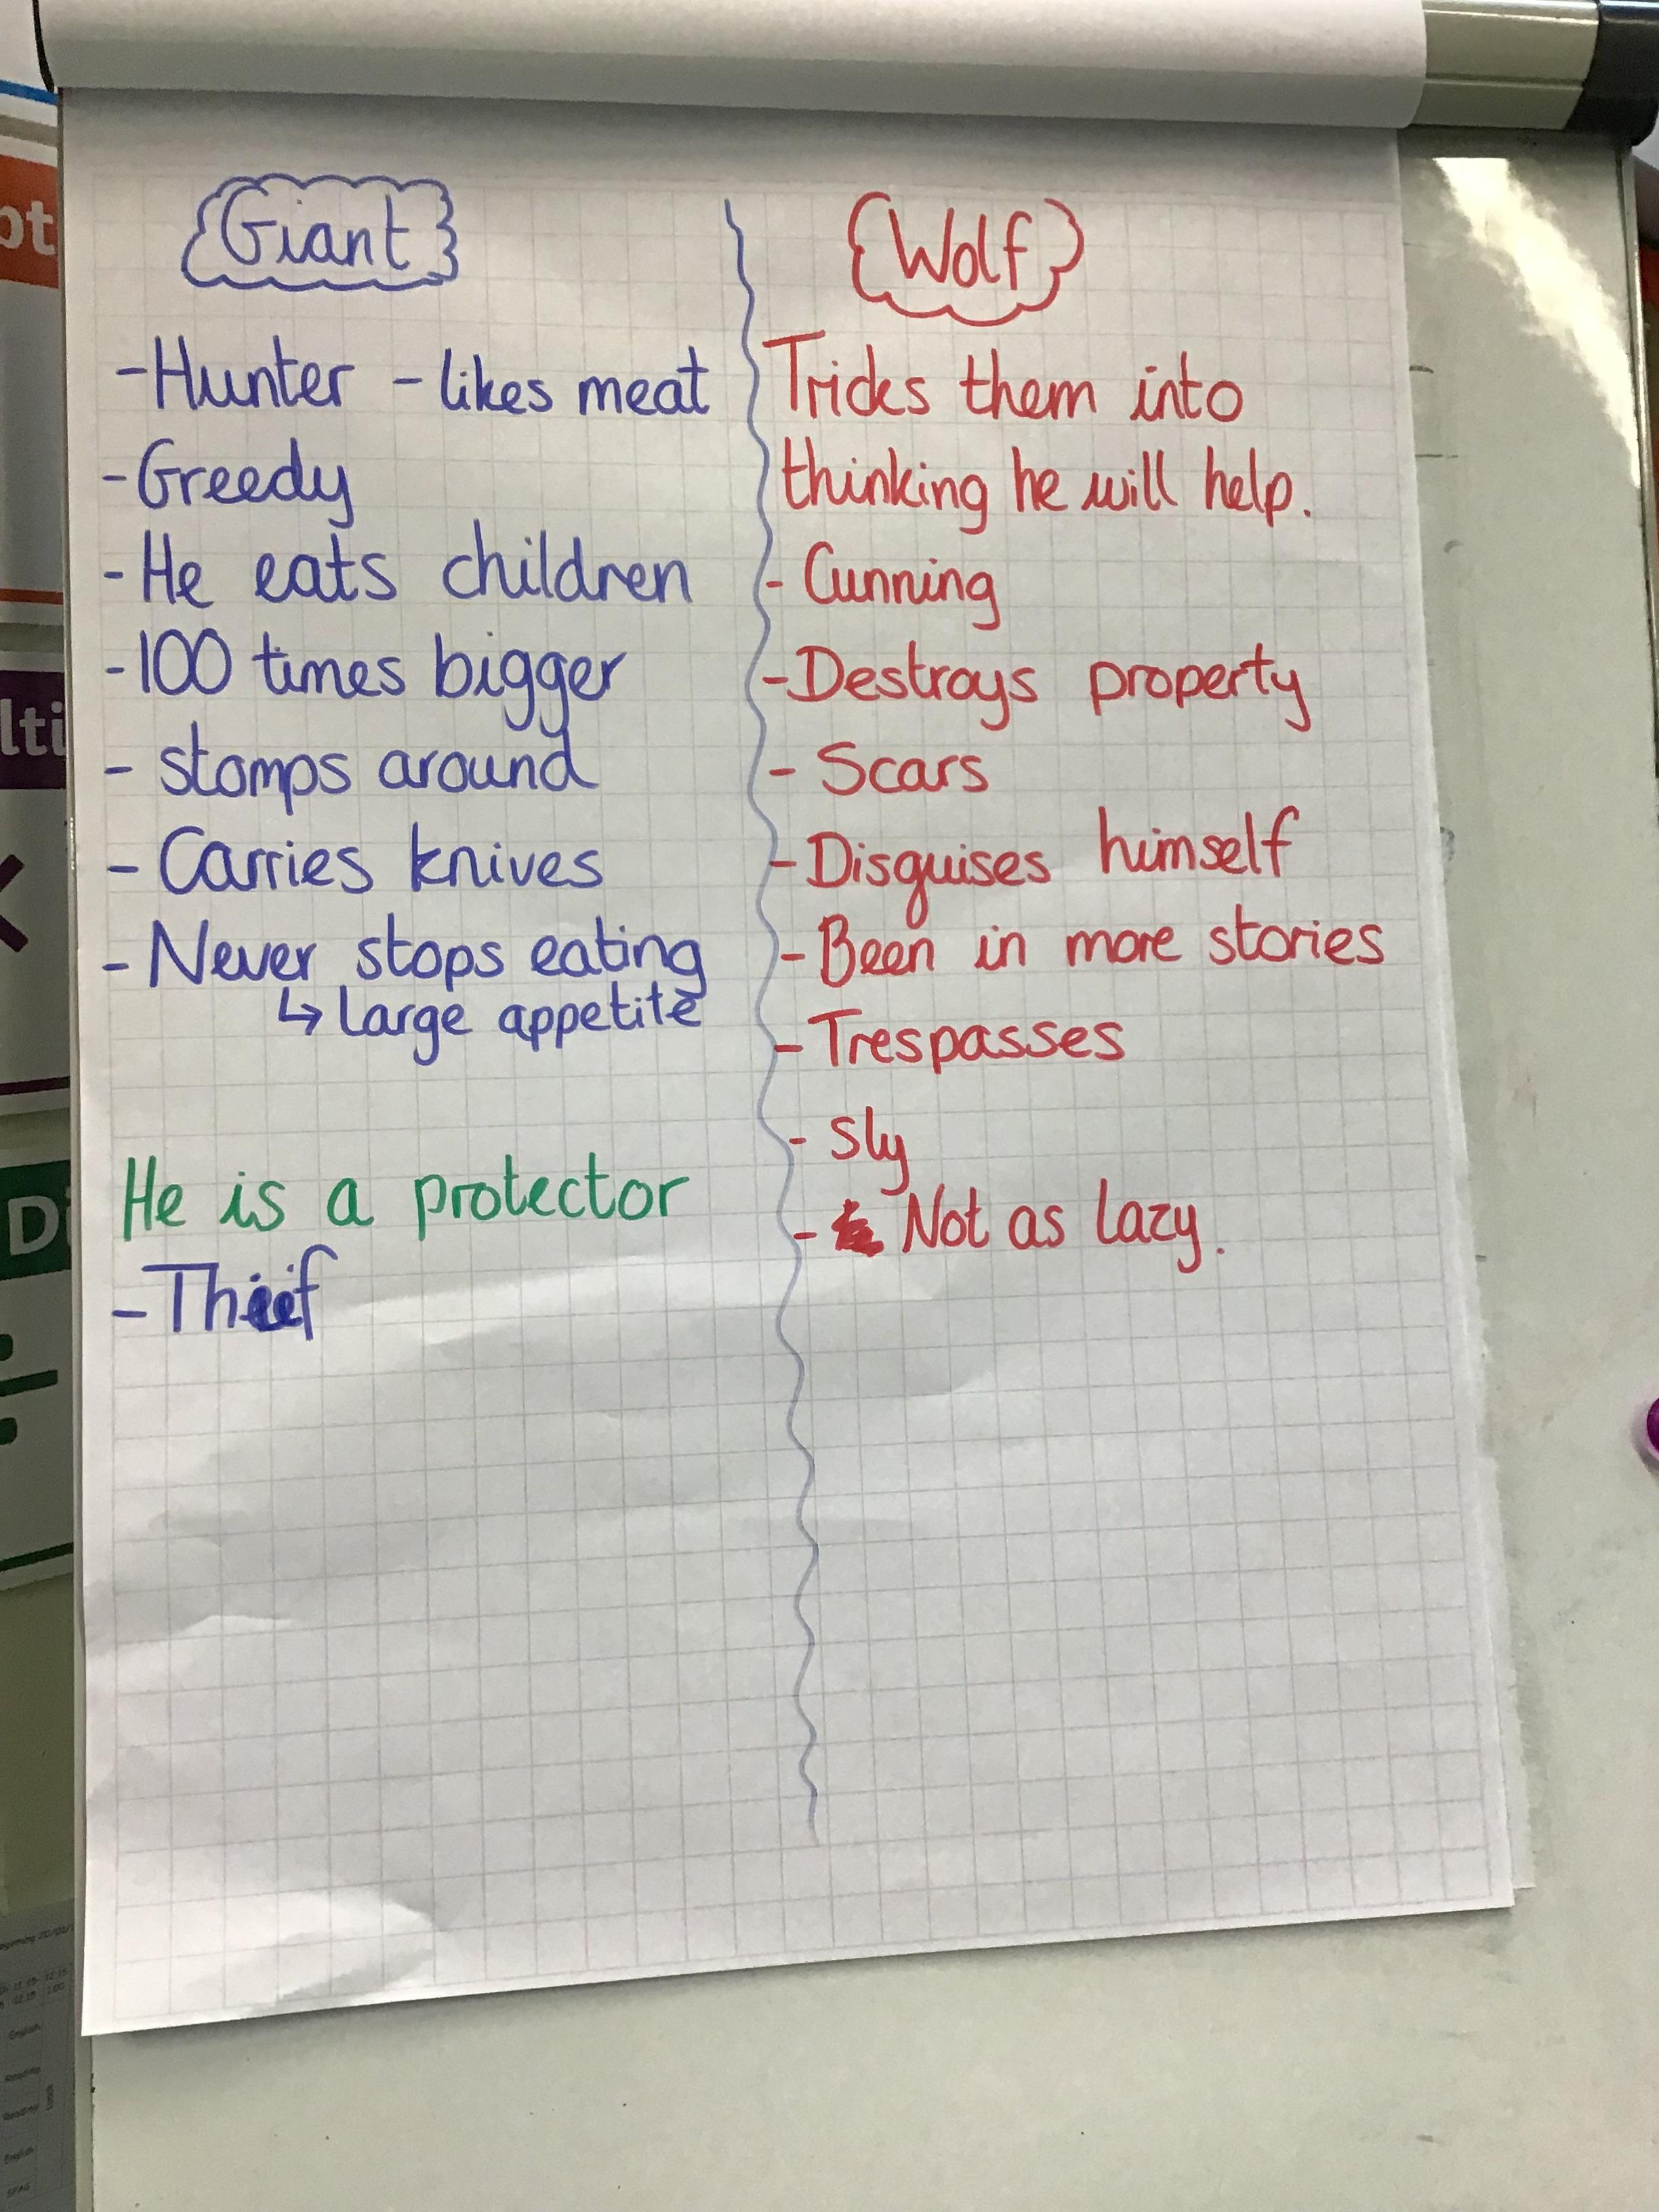 Giant
-Hunter - likes meat
-Greedy
-He eats children
-100 times bigger
- stomps around
- Carries knives
- Never stops eating
↳ Large appetite
He is a protector
-Thief
Wolf
Tricks them into
thinking he will help.
- Cunning
-Destroys property
- Scars
-Disguises himself
-Been in more stories
-Trespasses
- sly
- Not as lazy.
pt
lti
Di
English
Reading
Reading
English
SPAG